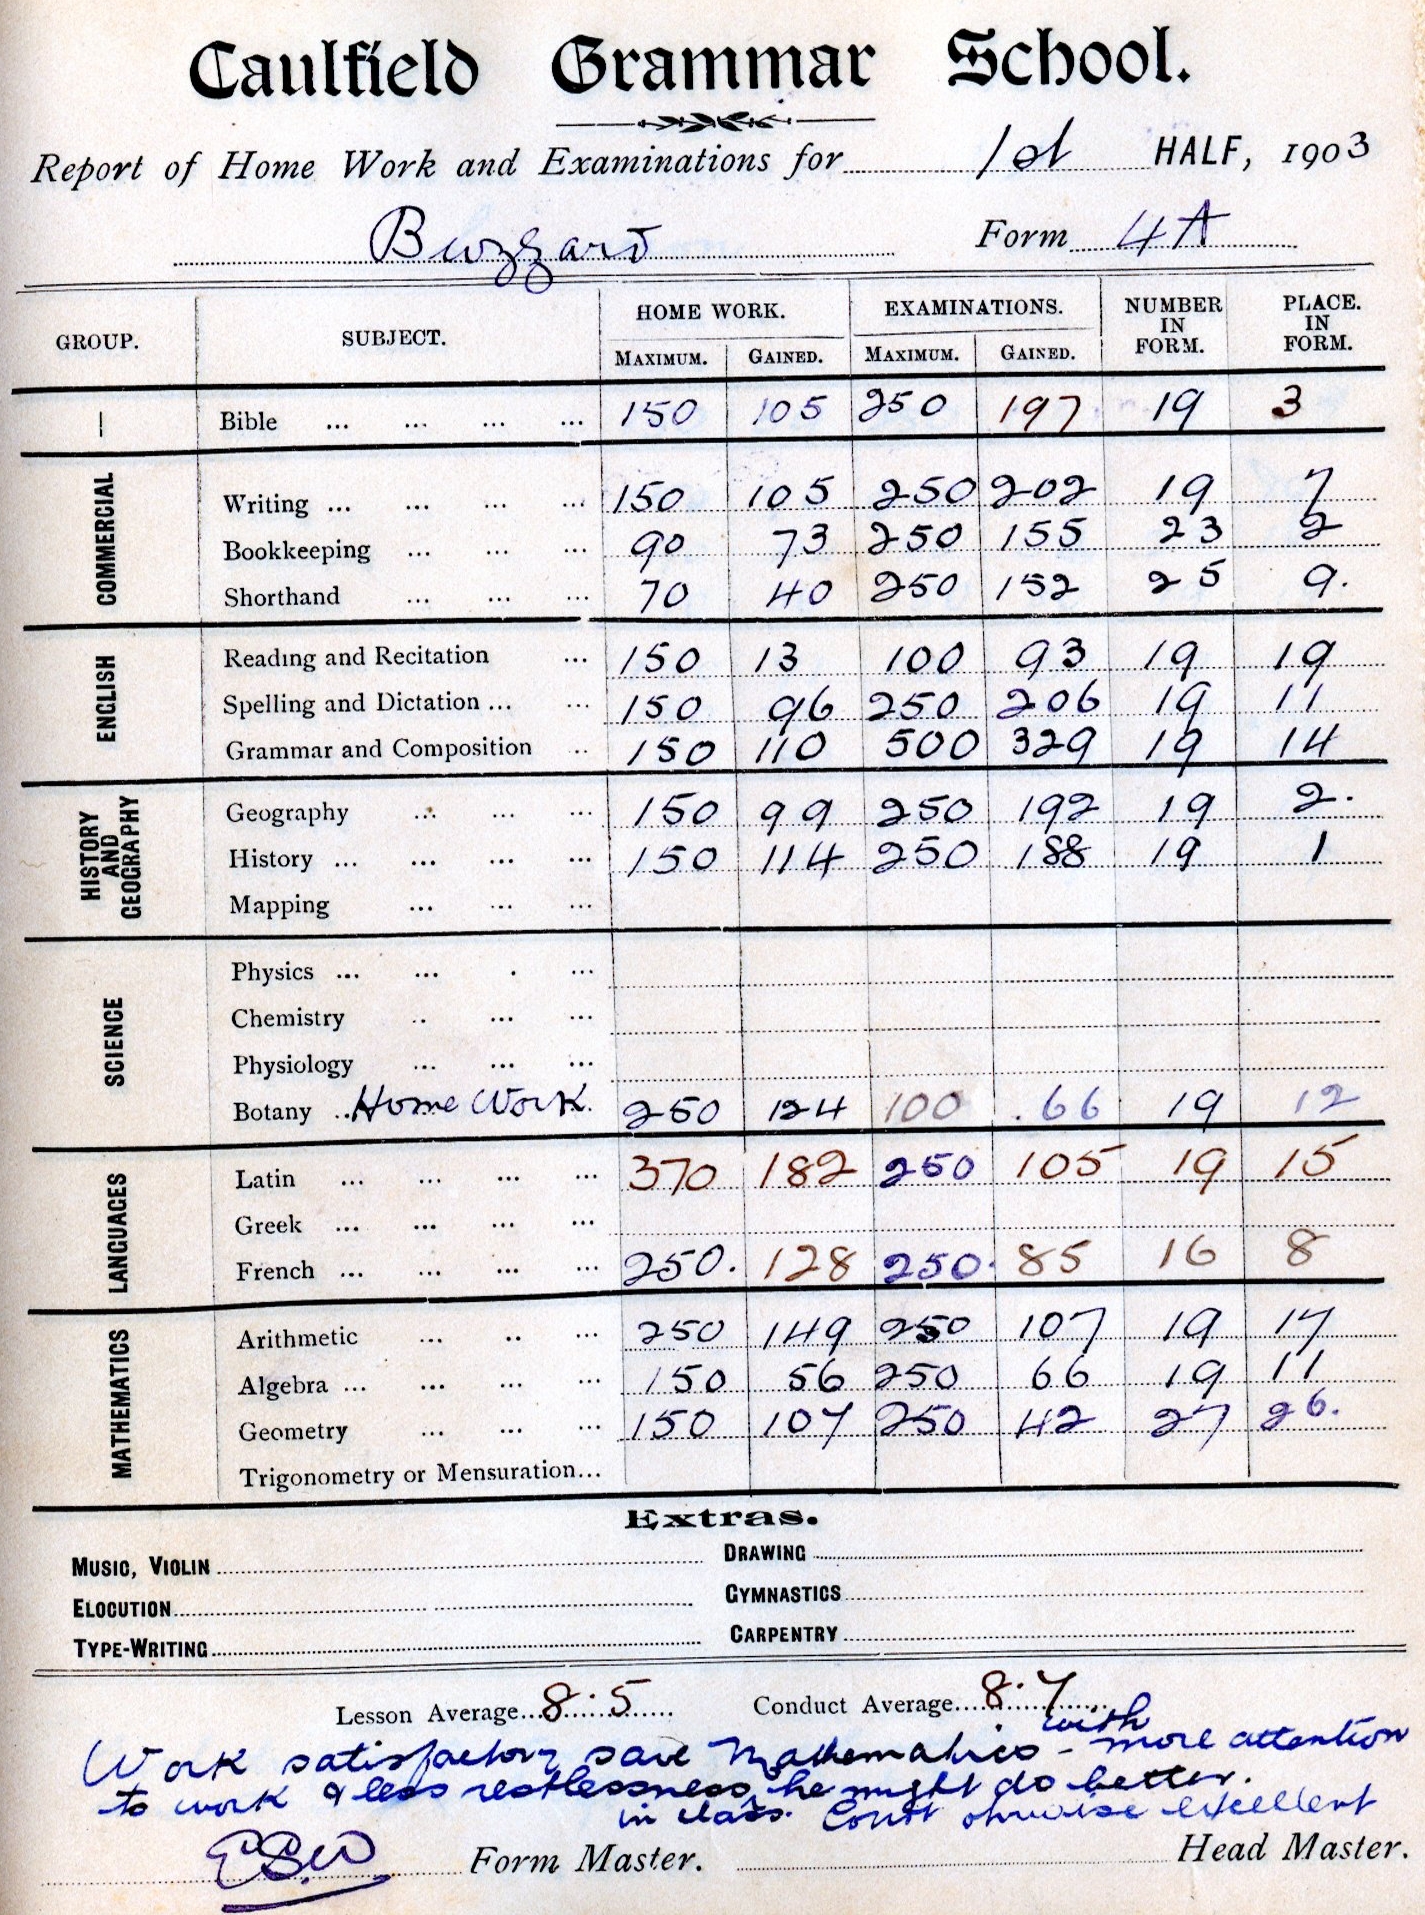 Caulfield Grammar School.
Report of Home Work and Examinations for 1st HALF, 1903
Buzzard Form 4A
GROUP. SUBJECT. HOME WORK. EXAMINATIONS. NUMBER IN FORM. PLACE. IN FORM.
MAXIMUM. GAINED. MAXIMUM. GAINED.
Bible ... ... ... ... 150 105 250 197 19 3
COMMERCIAL
Writing ... ... ... ... 150 105 250 202 19 7
Bookkeeping ... ... ... 90 73 250 155 23 2
Shorthand ... ... ... 70 40 250 152 25 9.
ENGLISH
Reading and Recitation ... 150 13 100 93 19 19
Spelling and Dictation ... ... 150 96 250 206 19 11
Grammar and Composition .. 150 110 500 329 19 14
HISTORY AND GEOGRAPHY
Geography ... ... ... 150 99 250 192 19 2.
History ... ... ... ... 150 114 250 188 19 1
Mapping ... ... ...
SCIENCE
Physics ... ... . ...
Chemistry .. ... ...
Physiology ... ... ...
Botany .. Home Work. 250 124 100 .66 19 12
LANGUAGES
Latin ... ... ... ... 370 182 250 105 19 15
Greek ... ... ... ...
French ... ... ... ... 250. 128 250. 85 16 8
MATHEMATICS
Arithmetic ... .. ... 250 149 250 107 19 17
Algebra ... ... ... ... 150 56 250 66 19 11
Geometry ... ... ... 150 107 250 42 27 26.
Trigonometry or Mensuration...
Extras.
MUSIC, VIOLIN DRAWING
ELOCUTION GYMNASTICS
TYPE-WRITING CARPENTRY
Lesson Average 8.5 Conduct Average 8.7
Work satisfactory save Mathematics - with more attention
to work & less restlessness, he might do better.
in class. otherwise excellent
ESW Form Master. Head Master.